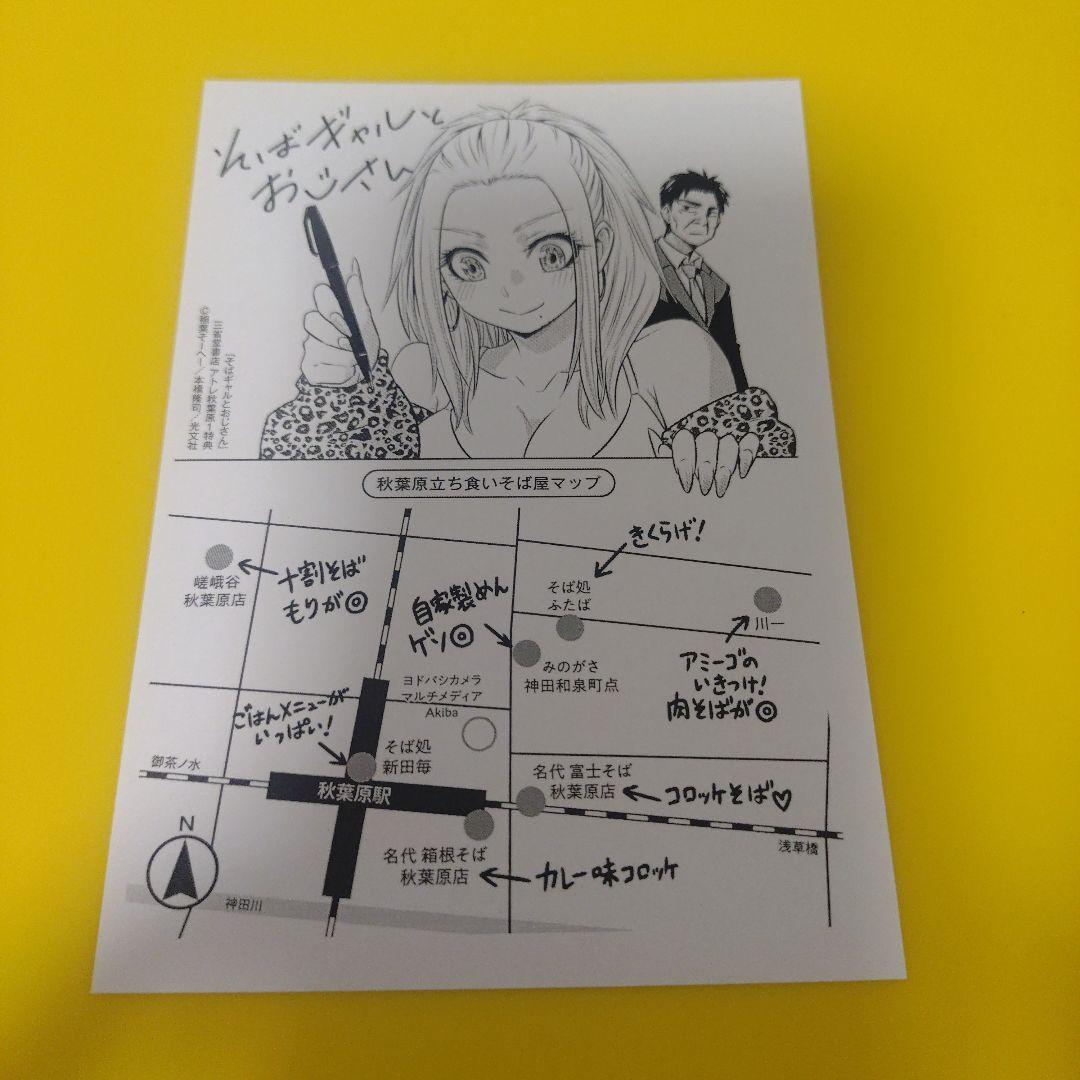 そばギャルと
おじさん
「そばギャルとおじさん」
三省堂書店 アトレ秋葉原1特典
©稲葉そーへー／本橋隆司／光文社
秋葉原立ち食いそば屋マップ
きくらげ！
嵯峨谷
秋葉原店
十割そば
もりが◎
自家製めん
ゲソ◎
そば処
ふたば
川一
みのがさ
神田和泉町点
アミーゴの
いきつけ！
肉そばが◎
ヨドバシカメラ
マルチメディア
Akiba
ごはんメニューが
いっぱい！
そば処
新田毎
御茶ノ水
秋葉原駅
名代 富士そば
秋葉原店
コロッケそば♡
浅草橋
N
名代 箱根そば
秋葉原店
カレー味コロッケ
神田川